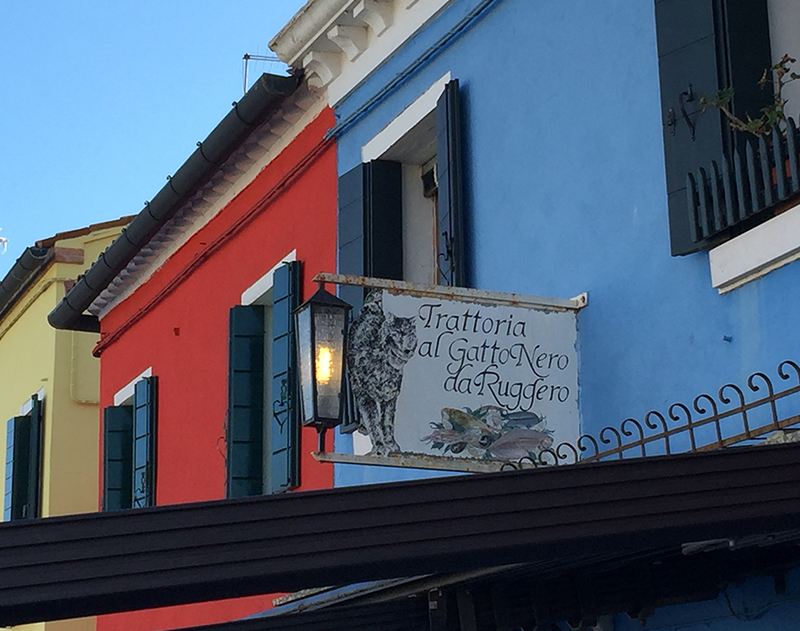 Trattoria
al Gatto Nero
da Ruggero